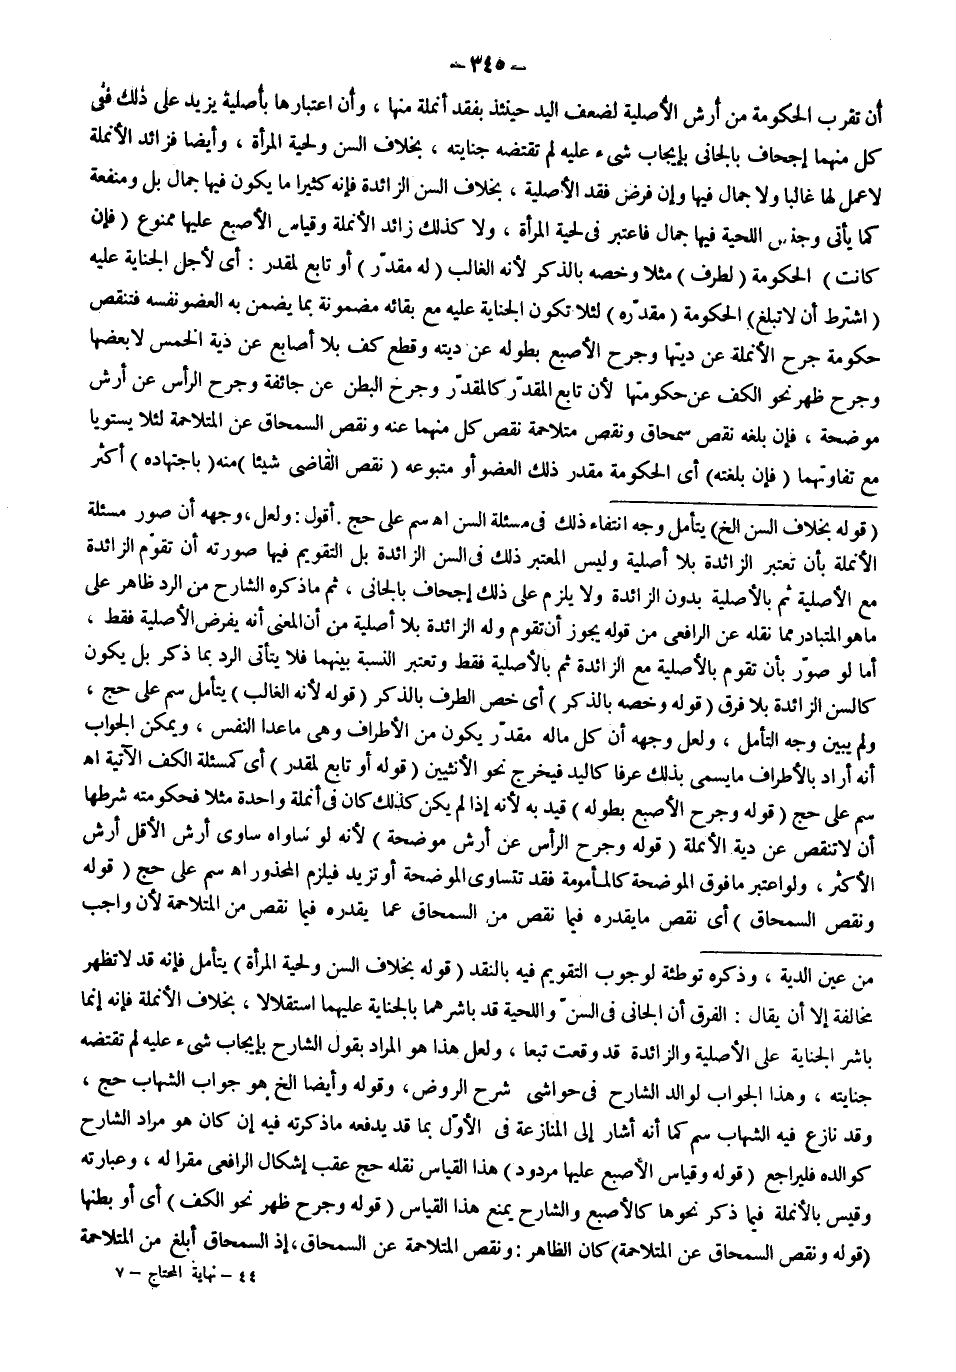 - ٣٤٥ -
أن تقرب الحكومة من أرش الأصلية لضعف اليد حينئذ بفقد أنملة منها ، وأن اعتبارها بأصلية يزيد على ذلك فنى
كل منهما إجحاف بالجانى بإيجاب شىء عليه لم تقتضه جنايته ، بخلاف السن ولحية المرأة ، وأيضا فزائد الأنملة
لاعمل لها غالبا ولا جمال فيها وإن فرض فقد الأصلية ، بخلاف السن الزائدة فإنه كثيرا ما يكون فيها جمال بل ومنفعة
كما يأتى وجنس اللحية فيها جمال فاعتبر فى لحية المرأة ، ولا كذلك زائد الأنملة وقياس الأصبع عليها ممنوع ( فإن
كانت ) الحكومة ( لطرف ) مثلا وخصه بالذكر لأنه الغالب ( له مقدّر ) أو تابع لمقدر : أى لأجل الجناية عليه
( اشترط أن لاتبلغ) الحكومة ( مقدّره ) لئلا تكون الجناية عليه مع بقائه مضمونة بما يضمن به العضو نفسه فتنقص
حكومة جرح الأنملة عن ديتها وجرح الأصبع بطوله عن ديته وقطع كف بلا أصابع عن دية الخمس لا بعضها
وجرح ظهر نحو الكف عن حكومتها لأن تابع المقدّر كالمقدّر وجرح البطن عن جائفة وجرح الرأس عن أرش
موضحة ، فإن بلغه نقص سمحاق ونقص متلاحمة نقص كل منهما عنه ونقص السمحاق عن المتلاحمة لئلا يستويا
مع تفاوتهما ( فإن بلغته) أى الحكومة مقدر ذلك العضو أو متبوعه ( نقص القاضى شيئا )منه( باجتهاده ) أكثر
( قوله بخلاف السن الخ) يتأمل وجه انتفاء ذلك فى مسئلة السن اه سم على حج . أقول : ولعل، وجهه أن صور مسئلة
الأنملة بأن تعتبر الزائدة بلا أصلية وليس المعتبر ذلك فى السن الزائدة بل التقويم فيها صورته أن تقوّم الزائدة
مع الأصلية ثم بالأصلية بدون الزائدة ولا يلزم على ذلك إجحاف بالجانى ، ثم ماذكره الشارح من الرد ظاهر على
ماهو المتبادر مما نقله عن الرافعى من قوله يجوز أن تقوم وله الزائدة بلا أصلية من أن المعنى أنه يفرض الأصلية فقط ،
أما لو صوّر بأن تقوم بالأصلية مع الزائدة ثم بالأصلية فقط وتعتبر النسبة بينهما فلا يتأتى الرد بما ذكر بل يكون
كالسن الزائدة بلا فرق ( قوله وخصه بالذكر ) أى خص الطرف بالذكر ( قوله لأنه الغالب ) يتأمل سم على حج ،
ولم يبين وجه التأمل ، ولعل وجهه أن كل ماله مقدّر يكون من الأطراف وهى ماعدا النفس ، ويمكن الجواب
أنه أراد بالأطراف مايسمى بذلك عرفا كاليد فيخرج نحو الأنثيين ( قوله أو تابع لمقدر ) أى كمسئلة الكف الآتية اه
سم على حج ( قوله وجرح الأصبع بطوله ) قيد به لأنه إذا لم يكن كذلك كان فى أنملة واحدة مثلا فحكومته شرطها
أن لاتنقص عن دية الأنملة ( قوله وجرح الرأس عن أرش موضحة ) لأنه لو ساواه ساوى أرش الأقل أرش
الأكثر ، ولو اعتبر مافوق الموضحة كالمأمومة فقد تتساوى الموضحة أو تزيد فيلزم المحذور اه سم على حج ( قوله
ونقص السمحاق ) أى نقص مايقدره فيما نقص من السمحاق عما يقدره فيما نقص من المتلاحمة لأن واجب
من عين الدية ، وذكره توطئة لوجوب التقويم فيه بالنقد ( قوله بخلاف السن ولحية المرأة ) يتأمل فإنه قد لاتظهر
مخالفة إلا أن يقال : الفرق أن الجانى فى السنّ واللحية قد باشرهما بالجناية عليهما استقلالا ، بخلاف الأنملة فإنه إنما
باشر الجناية على الأصلية والزائدة قد وقعت تبعا ، ولعل هذا هو المراد بقول الشارح بإيجاب شىء عليه لم تقتضه
جنايته ، وهذا الجواب لوالد الشارح فى حواشى شرح الروض، وقوله وأيضا الخ هو جواب الشهاب حج ،
وقد نازع فيه الشهاب سم كما أنه أشار إلى المنازعة فى الأوّل بما قد يدفعه ماذكرته فيه إن كان هو مراد الشارح
كوالده فليراجع ( قوله وقياس الأصبع عليها مردود) هذا القياس نقله حج عقب إشكال الرافعى مقرا له ، وعبارته
وقيس بالأنملة فيما ذكر نحوها كالأصبع والشارح يمنع هذا القياس ( قوله وجرح ظهر نحو الكف ) أى أو بطنها
(قوله ونقص السمحاق عن المتلاحمة) كان الظاهر : ونقص المتلاحمة عن السمحاق، إذ السمحاق أبلغ من المتلاحمة
٤٤ - نهاية المحتاج - ٧